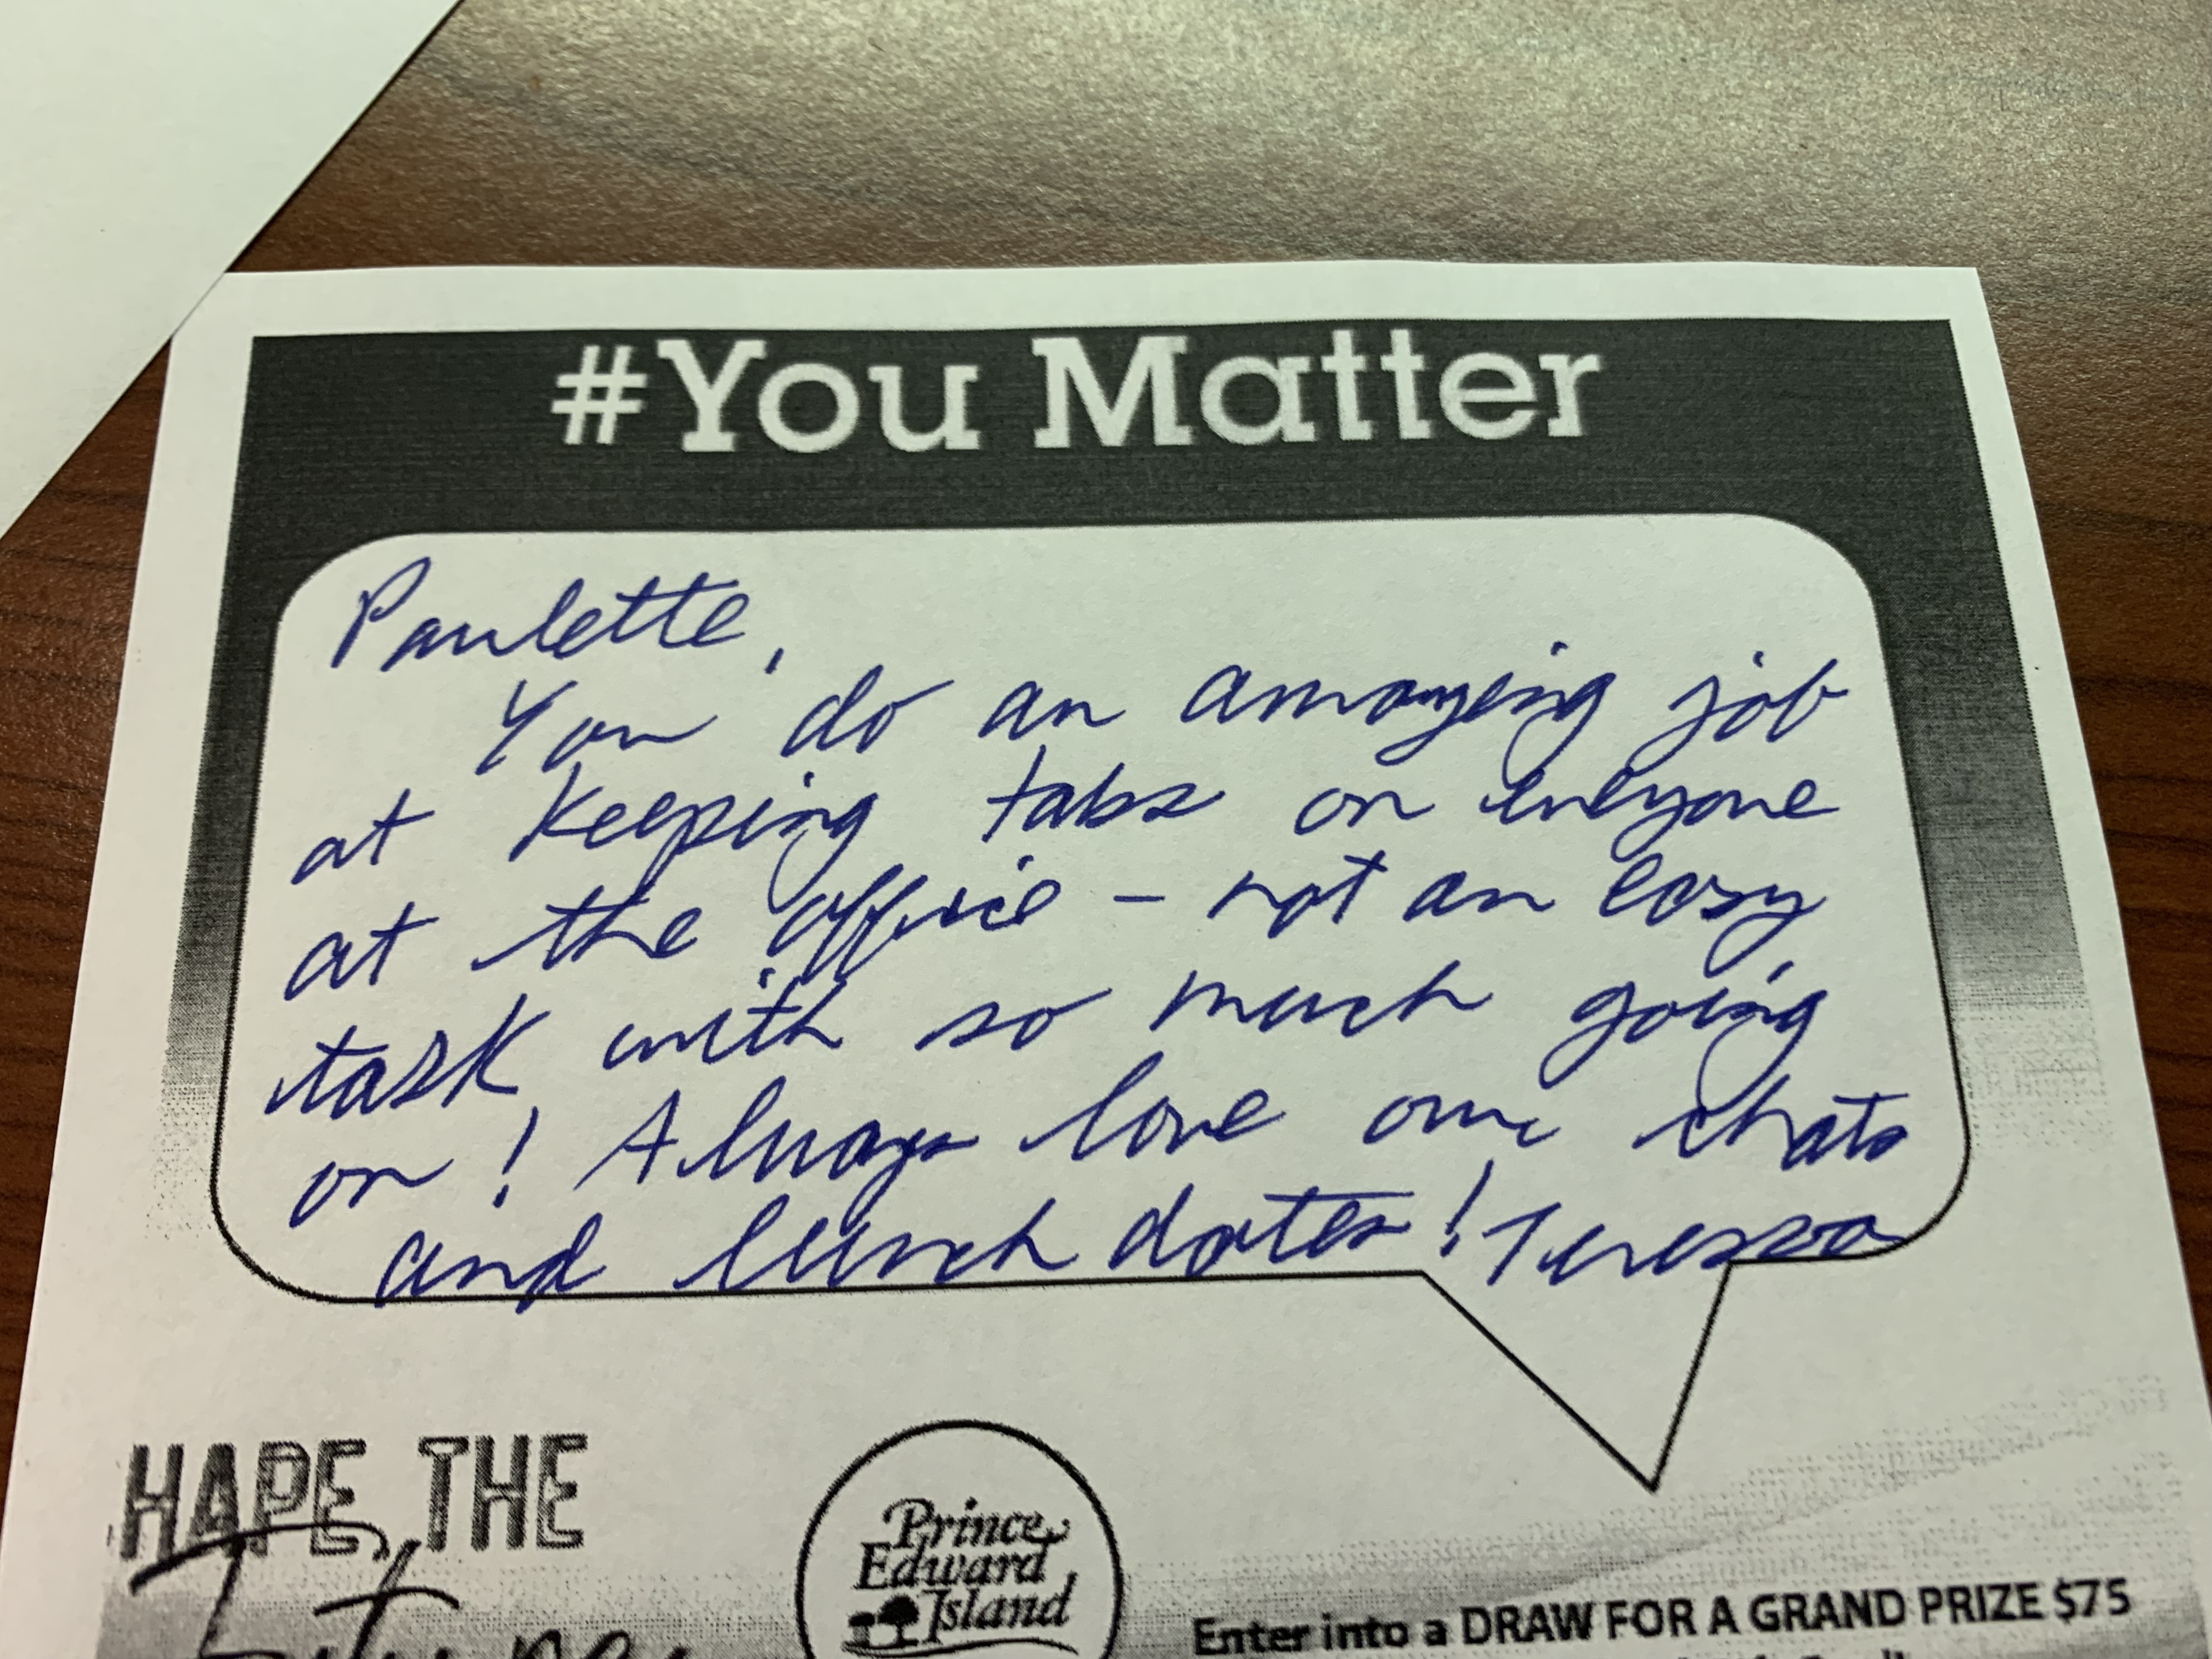 #You Matter
Paulette,
You do an amazing job
at keeping tabs on everyone
at the office - not an easy
task with so much going
on! Always love our chats
and lunch dates! Teressa
HAPE THE
Prince
Edward
Island
Enter into a DRAW FOR A GRAND PRIZE $75